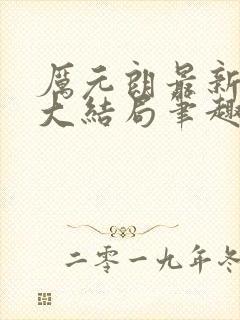 厲元朗最新
大结局笔趣
二零一九年冬